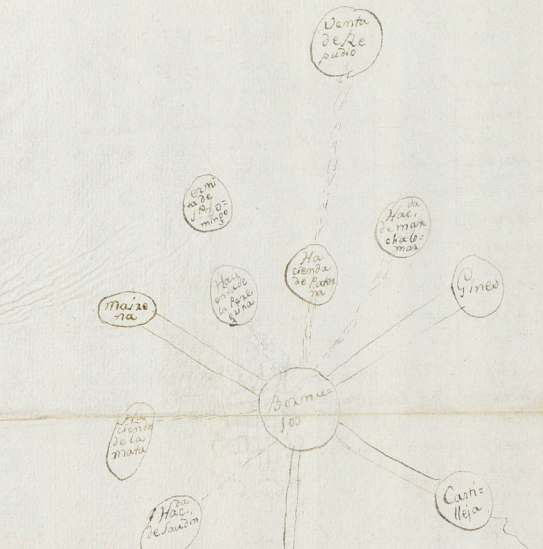 Venta
de Re
pudio
ermi
ta de
Sto Do=
mingo
Hacda
de mar
chalo=
mar
Ha
cienda
de Pater
na
Haci
enda de
la Pere
grina
Gines
Maire
na
Bormu=
jos
Ha
cienda
de la
Mata
Hacda
Casti=
lleja